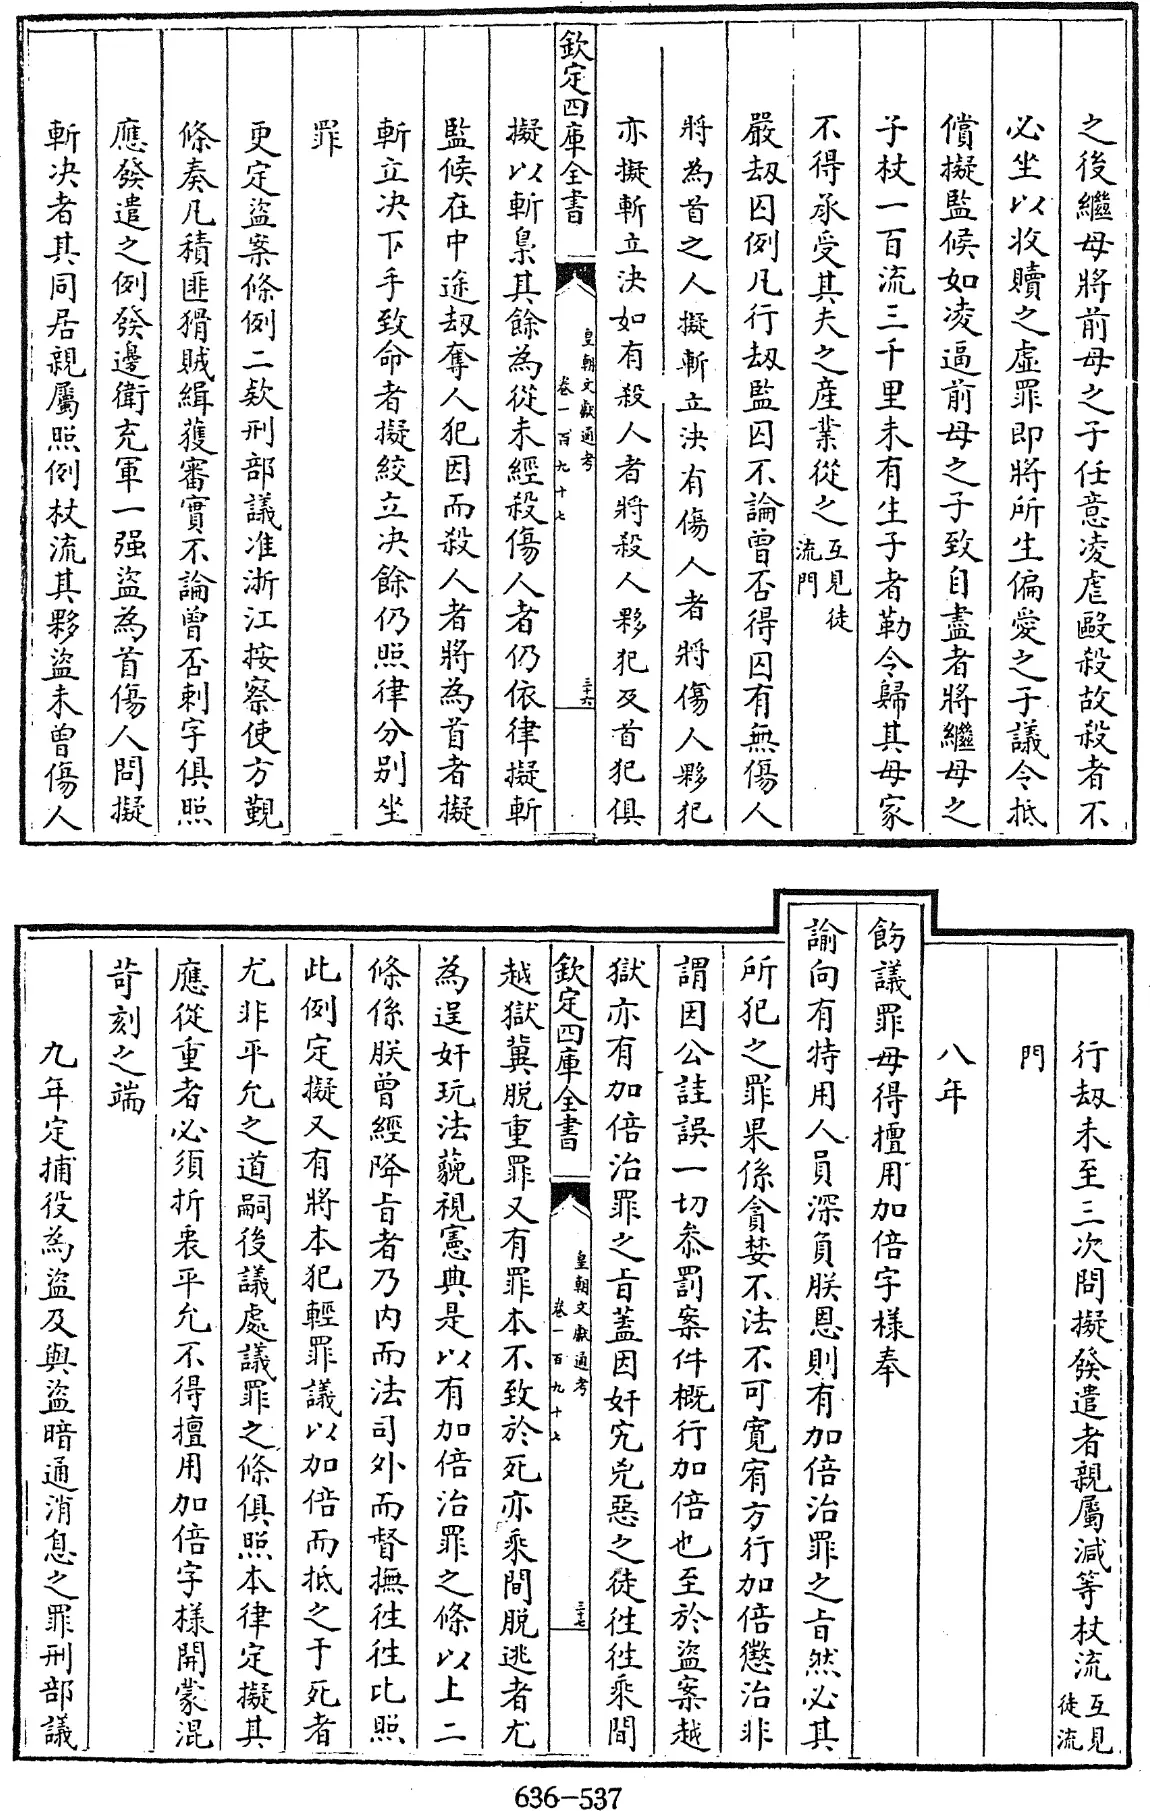 之後繼母將前母之子任意凌虐毆殺故殺者不
必坐以收贖之虛罪即將所生偏愛之子議令抵
償擬監候如凌逼前母之子致自盡者將繼母之
子杖一百流三千里未有生子者勒令歸其母家
不得承受其夫之産業從之互見徒
流門
嚴劫囚例凡行劫監囚不論曾否得囚有無傷人
將為首之人擬斬立決有傷人者將傷人夥犯
亦擬斬立決如有殺人者將殺人夥犯及首犯俱
欽定四庫全書
皇朝文獻通考
卷一百九十七
三十六
擬以斬梟其餘為從未經殺傷人者仍依律擬斬
監候在中途劫奪人犯因而殺人者將為首者擬
斬立决下手致命者擬絞立决餘仍照律分别坐
罪
更定盜案條例二欵刑部議准浙江按察使方覲
條奏凡積匪猾賊緝獲審實不論曾否刺字俱照
應發遣之例發邊衛充軍一强盜為首傷人問擬
斬决者其同居親屬照例杖流其夥盜未曾傷人
行刼未至三次問擬發遣者親屬減等杖流互見
徒流
門
八年
飭議罪毋得擅用加倍字樣奉
諭向有特用人員深負朕恩則有加倍治罪之㫖然必其
所犯之罪果係貪婪不法不可寬宥方行加倍懲治非
謂因公詿誤一切叅罰案件概行加倍也至於盜案越
獄亦有加倍治罪之㫖蓋因奸宄兇惡之徒往往乘間
欽定四庫全書
皇朝文獻通考
卷一百九十七
三十七
越獄冀脱重罪又有罪本不致於死亦乘間脱逃者尤
為逞奸玩法藐視憲典是以有加倍治罪之條以上二
條係朕曾經降㫖者乃内而法司外而督撫往往比照
此例定擬又有將本犯輕罪議以加倍而抵之于死者
尤非平允之道嗣後議處議罪之條俱照本律定擬其
應從重者必須折衷平允不得擅用加倍字樣開蒙混
苛刻之端
九年定捕役為盜及與盜暗通消息之罪刑部議
636-537